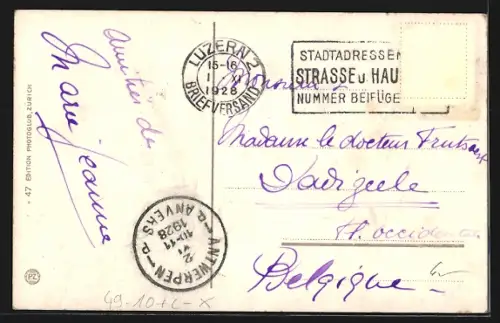 Amitiés de
Marie Jeanne
47 EDITION PHOTOGLOB, ZÜRICH
LUZERN 2
15-16
1928
BRIEFVERSAND
STADTADRESSEN
STRASSE U. HAU
NUMMER BEIFÜGE
Monsieur
Madame le docteur
Fl. occidentale
Belgique
ANTWERPEN
ANVERS
2
VI
10-11
1928
PZ
49-10+L-X